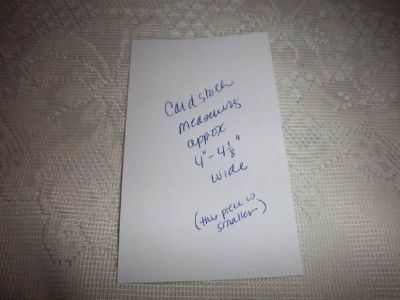 Cardstock
measures
appox
4" - 4 1/8"
wide
(this piece is
smaller)